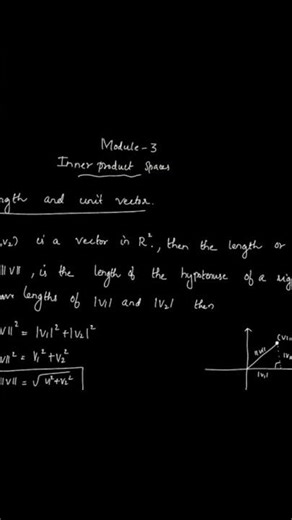 Module-3
Inner product spaces
ngth and unit vector.
,v₂) is a vector in R², then the length or
||v||, is the length of the hypotouse of a rig
lengths of |v₁| and |v₂| then
v||² = |v₁|² + |v₂|²
v||² = v₁² + v₂²
||v|| = √v₁²+v₂²
||v||
|v₁|